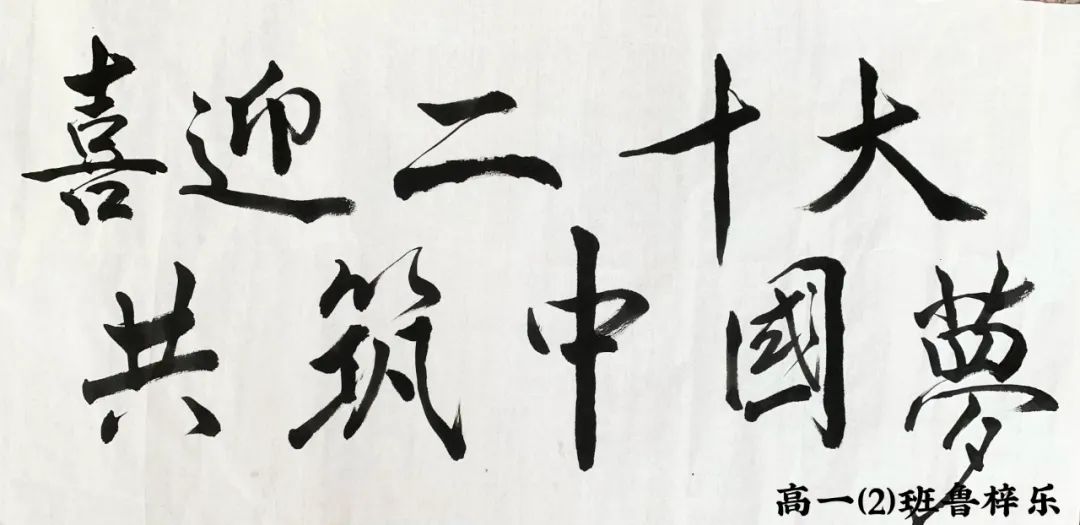 喜迎二十大
共筑中國夢
高一(2)班鲁梓乐